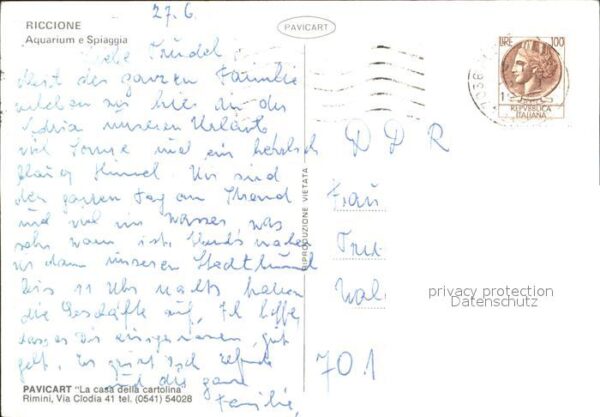 RICCIONE
Aquarium e Spiaggia
27.6.
PAVICART
LIRE 100
REPVBBLICA
ITALIANA
Liebe Trudel
der ganzen Familie
wir hier an der
Adria unseren Urlaub
viel Sonne und ein herrlich
blauer Himmel. Wir sind
den ganzen Tag am Strand
und viel im Wasser was
sehr warm ist. Abends machen
wir dann unseren Stadtbummel
bis 11 Uhr nachts haben
die Geschäfte auf. Ich hoffe
dass es Dir einigermassen gut
geht. Es grüsst Dich
und die ganze
Familie
DDR
Frau
Tru
Wal
701
RIPRODUZIONE VIETATA
privacy protection
Datenschutz
PAVICART "La casa della cartolina"
Rimini, Via Clodia 41 tel. (0541) 54028